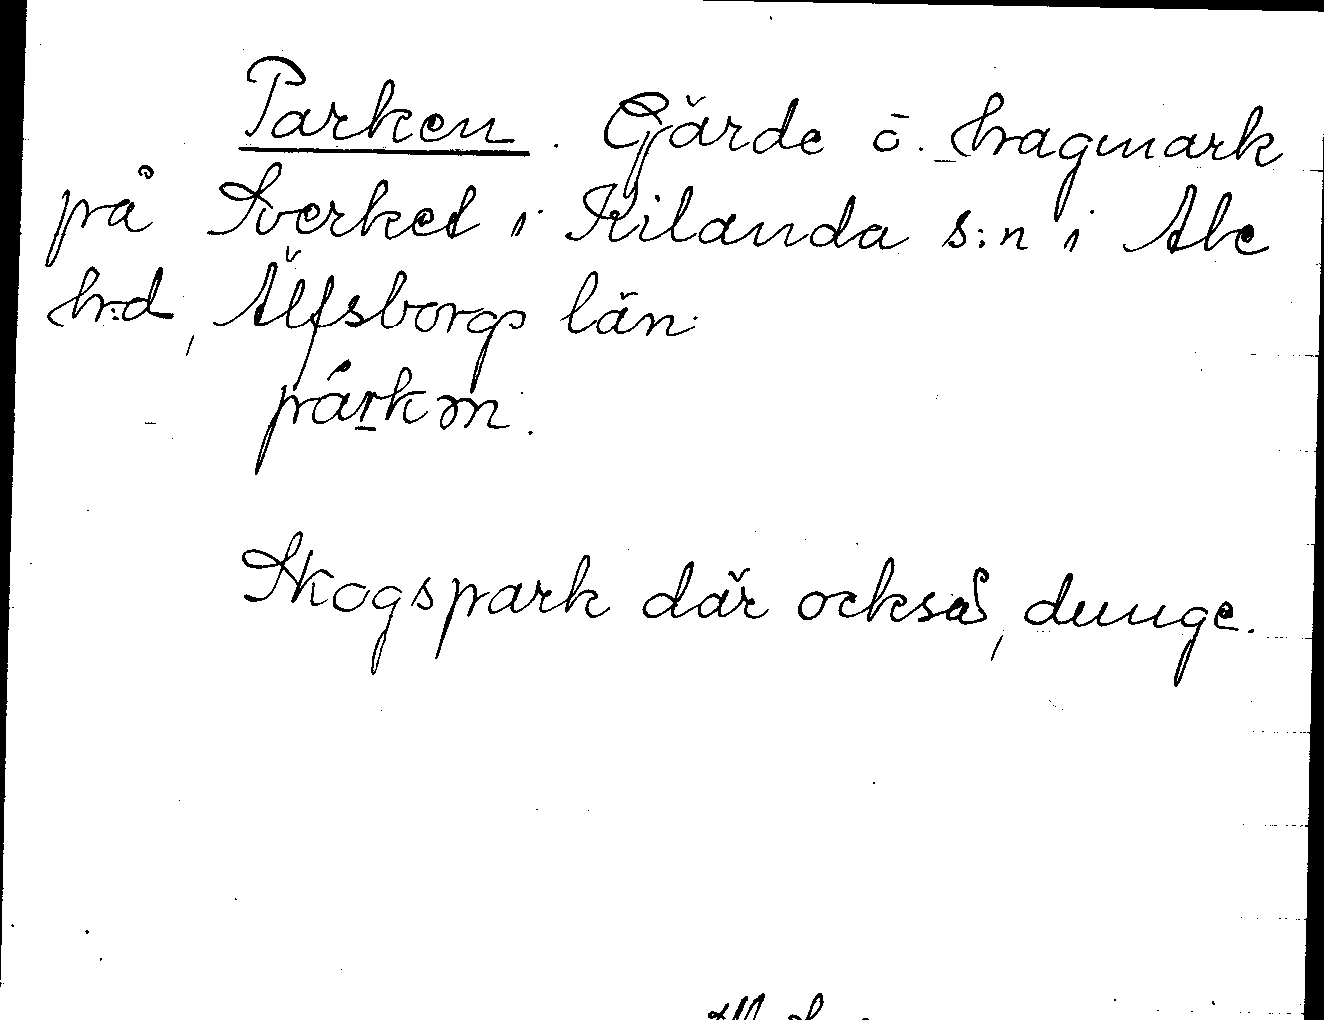 Parken. Gärde o. hagmark
på Sverket i Kilanda s:n i Ale
h:d, Älfsborgs län.
párkm.
Skogspark där också, dunge.